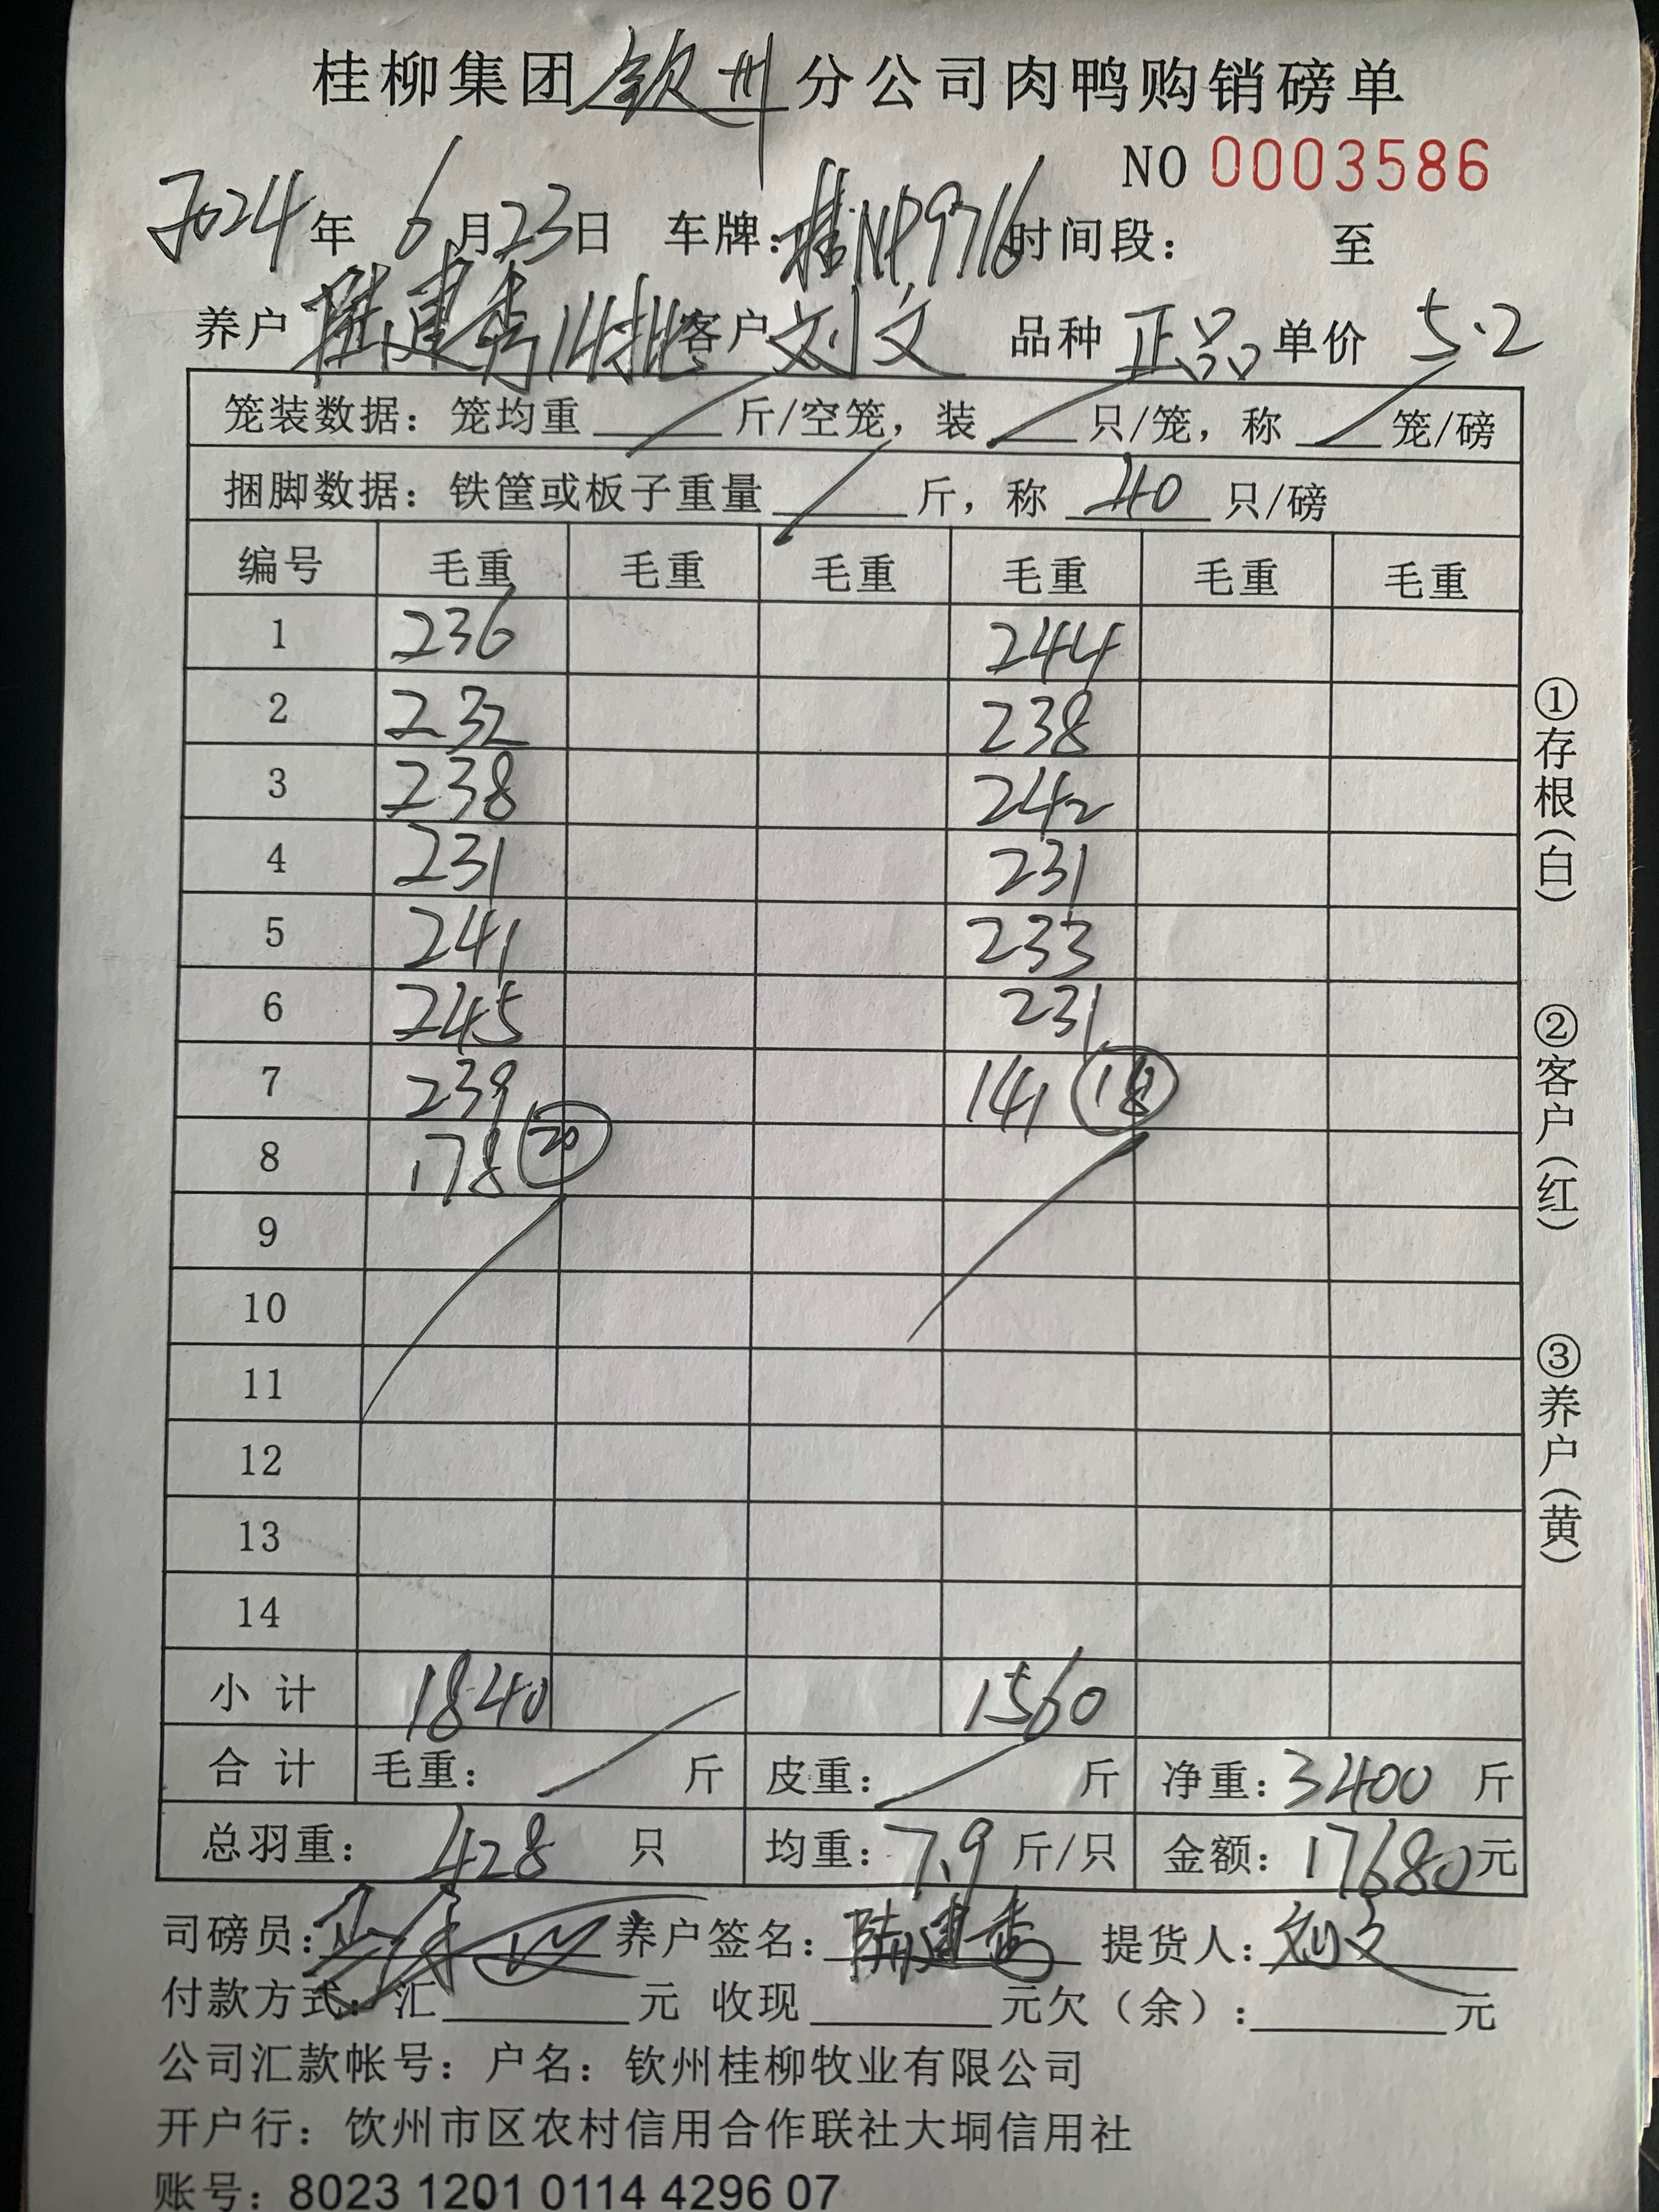 桂柳集团钦州分公司肉鸭购销磅单
NO 0003586
2024年 6月23日 车牌:桂NP9716 时间段: 至
养户 陆建秀14批 客户 刘文 品种 正品 单价 5.2
笼装数据: 笼均重 / 斤/空笼, 装 / 只/笼, 称 / 笼/磅
捆脚数据: 铁筐或板子重量 / 斤, 称 40 只/磅
编号 毛重 毛重 毛重 毛重 毛重 毛重
1 236 244
2 232 238
3 238 242
4 231 231
5 241 233
6 245 231
7 239 141 (18)
8 178 (20)
9
10
11
12
13
14
小计 1840 1560
合计 毛重: / 斤 皮重: / 斤 净重: 3400 斤
总羽重: 428 只 均重: 7.9 斤/只 金额: 17680元
司磅员: 养户签名: 陆建秀 提货人: 刘文
付款方式: 汇 元 收现 元欠(余): 元
公司汇款帐号: 户名: 钦州桂柳牧业有限公司
开户行: 钦州市区农村信用合作联社大垌信用社
账号: 8023 1201 0114 4296 07
①存根(白)
②客户(红)
③养户(黄)